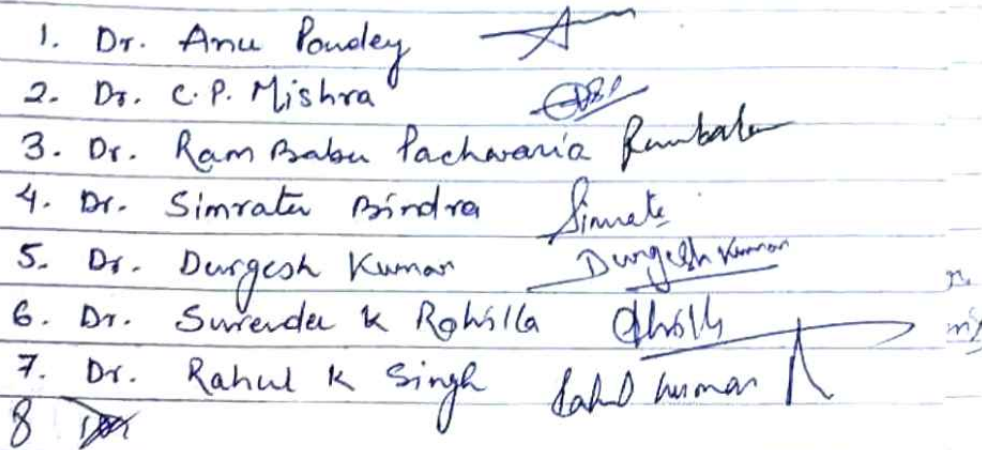 1. Dr. Anu Pandey
2. Dr. C.P. Mishra
3. Dr. Ram Babu Pachwaria Rambabu
4. Dr. Simrata Bindra Simrata
5. Dr. Durgesh Kumar Durgesh Kumar
6. Dr. Surender K Rohilla
7. Dr. Rahul K Singh Rahul Kumar
8